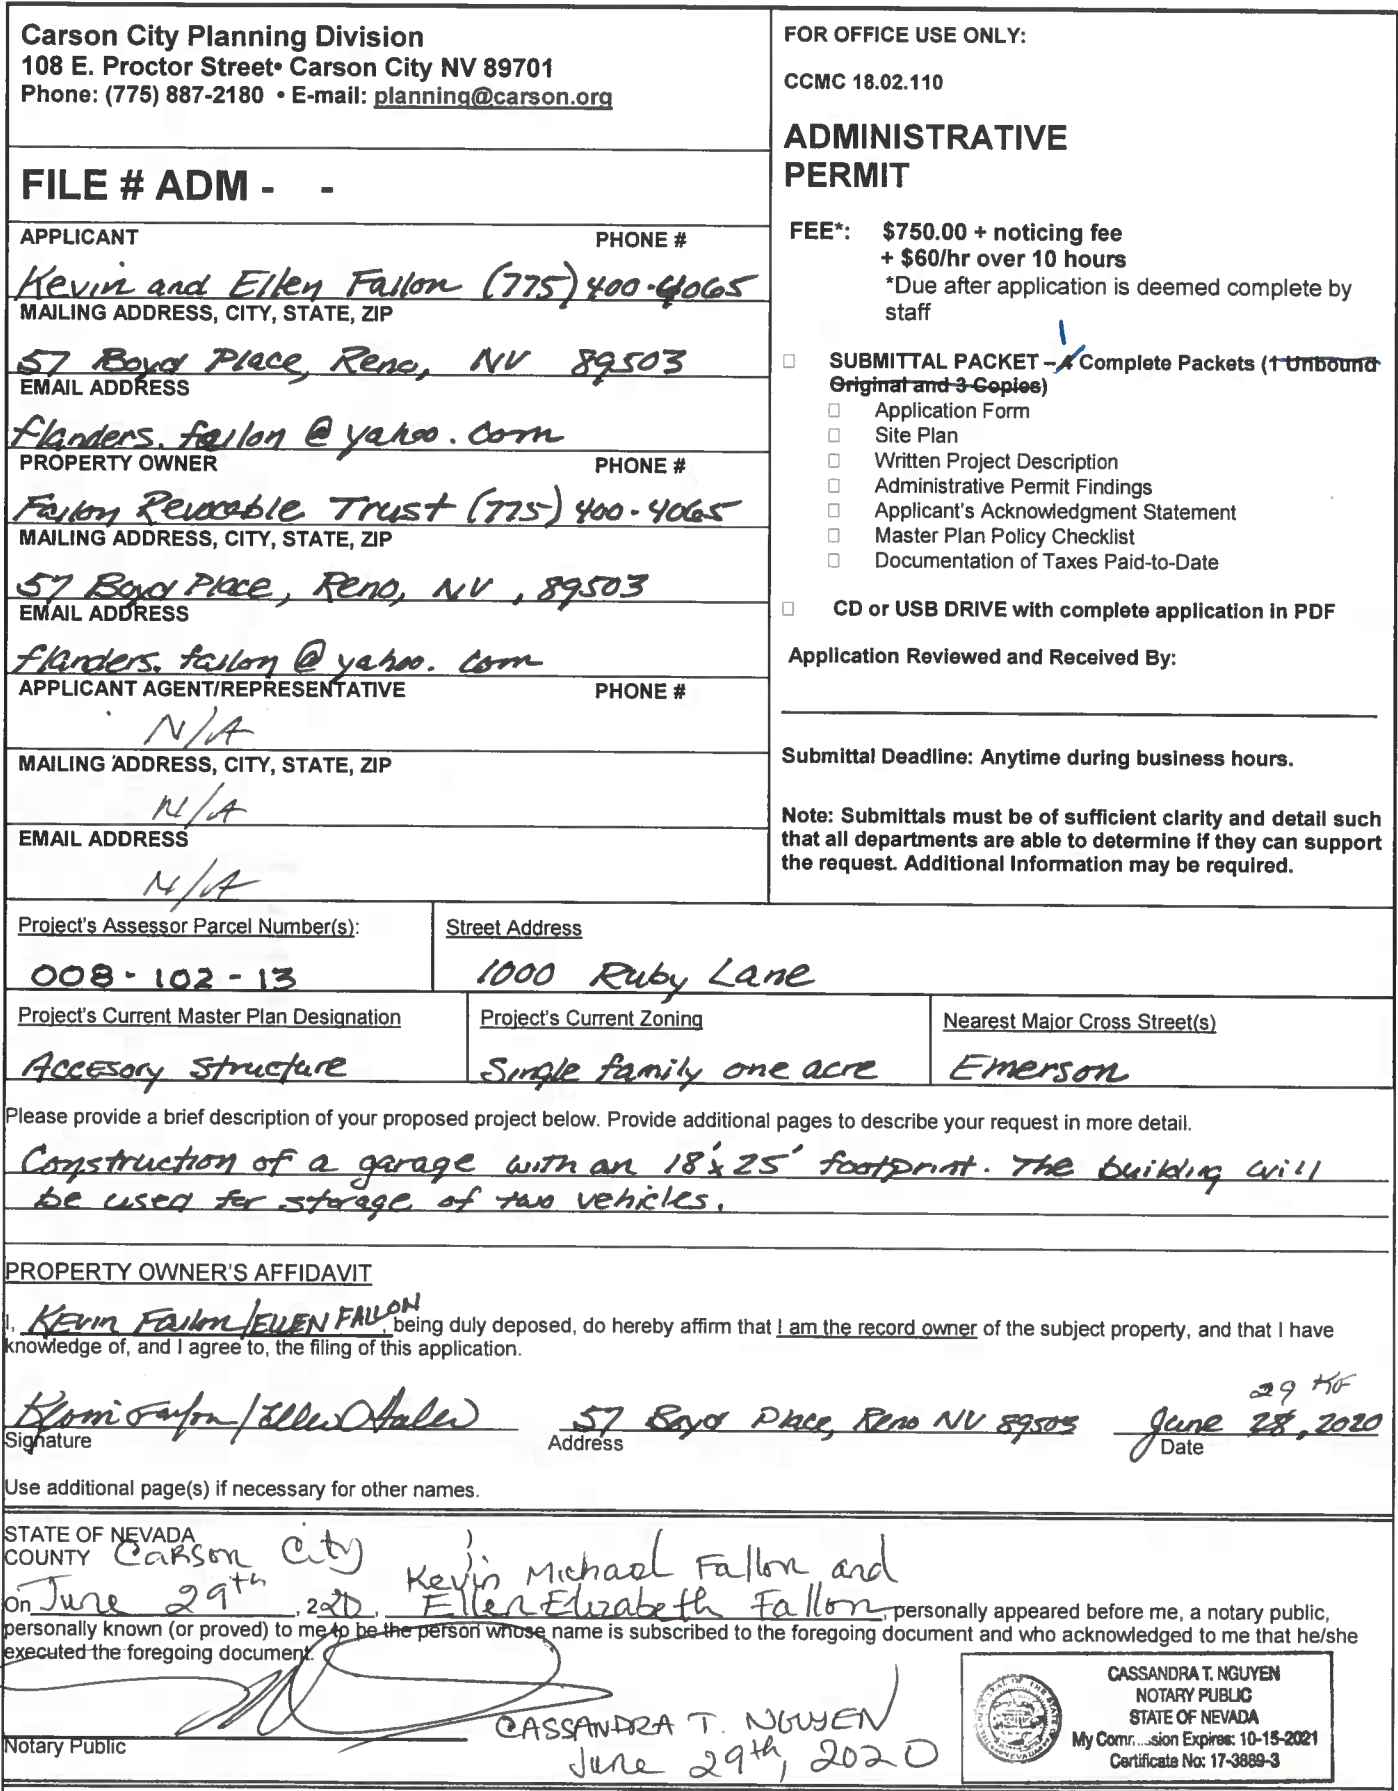 Carson City Planning Division
108 E. Proctor Street• Carson City NV 89701
Phone: (775) 887-2180 • E-mail: planning@carson.org
FILE # ADM - -
APPLICANT PHONE #
Kevin and Ellen Fallon (775) 400-4065
MAILING ADDRESS, CITY, STATE, ZIP
57 Boyd Place, Reno, NV 89503
EMAIL ADDRESS
flanders.fallon@yahoo.com
PROPERTY OWNER PHONE #
Fallon Revocable Trust (775) 400-4065
MAILING ADDRESS, CITY, STATE, ZIP
57 Boyd Place, Reno, NV, 89503
EMAIL ADDRESS
flanders.fallon@yahoo.com
APPLICANT AGENT/REPRESENTATIVE PHONE #
N/A
MAILING ADDRESS, CITY, STATE, ZIP
N/A
EMAIL ADDRESS
N/A
FOR OFFICE USE ONLY:
CCMC 18.02.110
ADMINISTRATIVE
PERMIT
FEE*: $750.00 + noticing fee
+ $60/hr over 10 hours
*Due after application is deemed complete by
staff
1
SUBMITTAL PACKET – 4 Complete Packets (1 Unbound
Original and 3 Copies)
Application Form
Site Plan
Written Project Description
Administrative Permit Findings
Applicant's Acknowledgment Statement
Master Plan Policy Checklist
Documentation of Taxes Paid-to-Date
CD or USB DRIVE with complete application in PDF
Application Reviewed and Received By:
Submittal Deadline: Anytime during business hours.
Note: Submittals must be of sufficient clarity and detail such
that all departments are able to determine if they can support
the request. Additional Information may be required.
Project's Assessor Parcel Number(s): Street Address
008-102-13 1000 Ruby Lane
Project's Current Master Plan Designation Project's Current Zoning Nearest Major Cross Street(s)
Accesory Structure Single family one acre Emerson
Please provide a brief description of your proposed project below. Provide additional pages to describe your request in more detail.
Construction of a garage with an 18'x25' footprint. The building will
be used for storage of two vehicles.
PROPERTY OWNER'S AFFIDAVIT
I, Kevin Fallon/ELLEN FALLON, being duly deposed, do hereby affirm that I am the record owner of the subject property, and that I have
knowledge of, and I agree to, the filing of this application.
29 KF
57 Boyd Place, Reno NV 89503 June 28, 2020
Signature Address Date
Use additional page(s) if necessary for other names.
STATE OF NEVADA )
COUNTY Carson City )
Kevin Michael Fallon and
On June 29th, 2020, Ellen Elizabeth Fallon, personally appeared before me, a notary public,
personally known (or proved) to me to be the person whose name is subscribed to the foregoing document and who acknowledged to me that he/she
executed the foregoing document.
CASSANDRA T. NGUYEN
June 29th, 2020
Notary Public
CASSANDRA T. NGUYEN
NOTARY PUBLIC
STATE OF NEVADA
My Comm...sion Expires: 10-15-2021
Certificate No: 17-3889-3